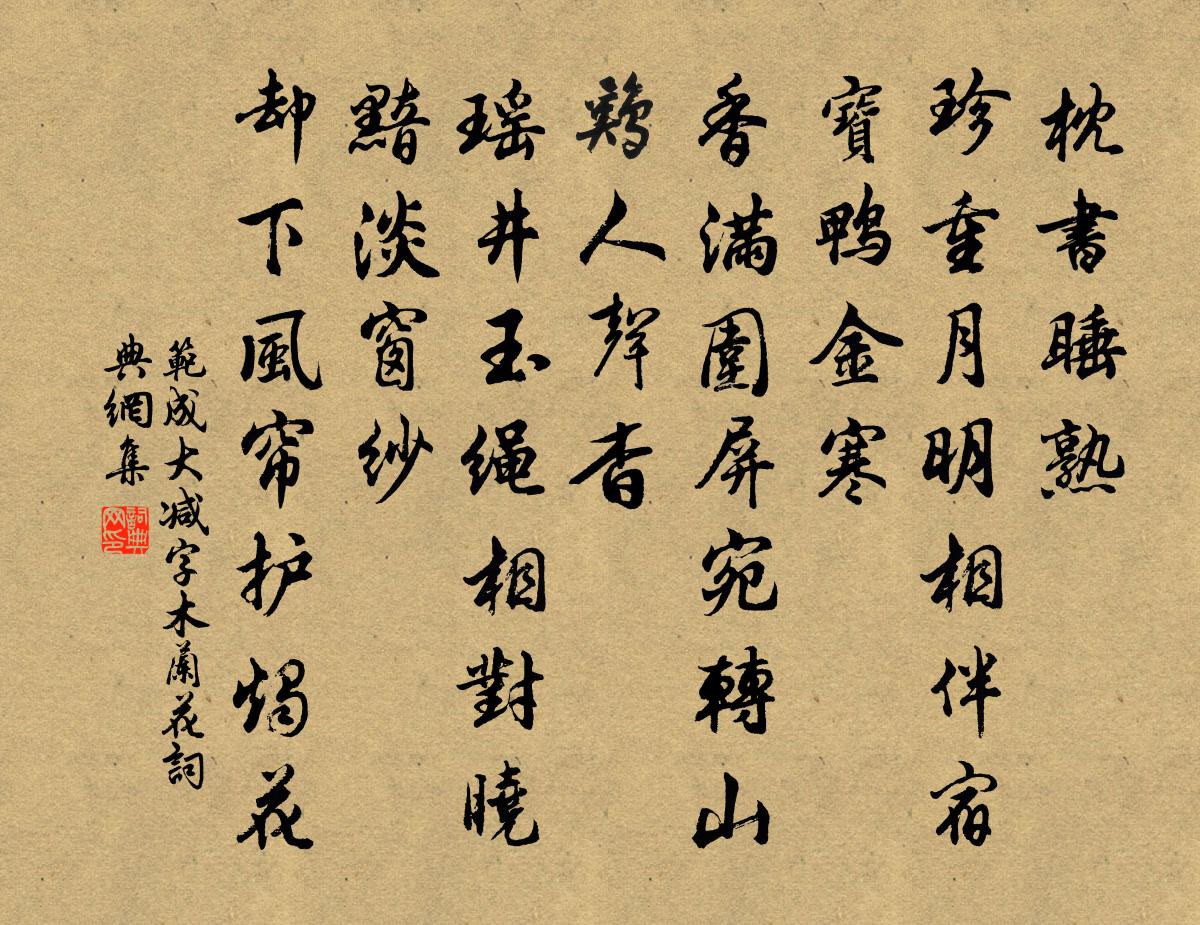 枕書睡熟
珍重月明相伴宿
寶鴨金寒
香滿圍屏宛轉山
鷄人聲杳
瑶井玉绳相對曉
黯淡窗紗
却下風帘护燭花
範成大减字木蘭花詞
典網集
詞典网印